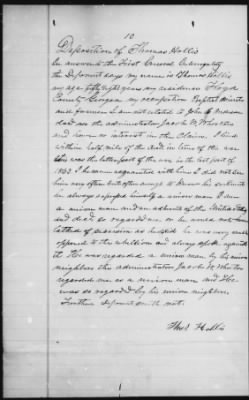 10
Deposition of Thomas Hollis
In answer to the First General Interrogatory
the Deponent says my name is Thomas Hollis
my age fifty eight years my residence Floyd
County Georgia my occupation Baptist Minister
and farmer I am not related to John
dad nor the administrator Jacob R
and have no interest in the Claim. I lived
within half mile of the in time of the war
this was the latter part of the war in the last part of
1863 I became acquainted with him I did not see
him very often but often enough to know his sentiments
he always expressed himself a union man I am
a union man and an adherent of the United States
and did so regard me or he would not have
talked of secession as he did he was very much
opposed to the rebellion and always spoke against
it He was regarded a union man by his union
neighbors the administrator Jacob R
regarded me as a union man and He
was so regarded by his union neighbors
Further deponent saith not.
Thos. Hollis
1